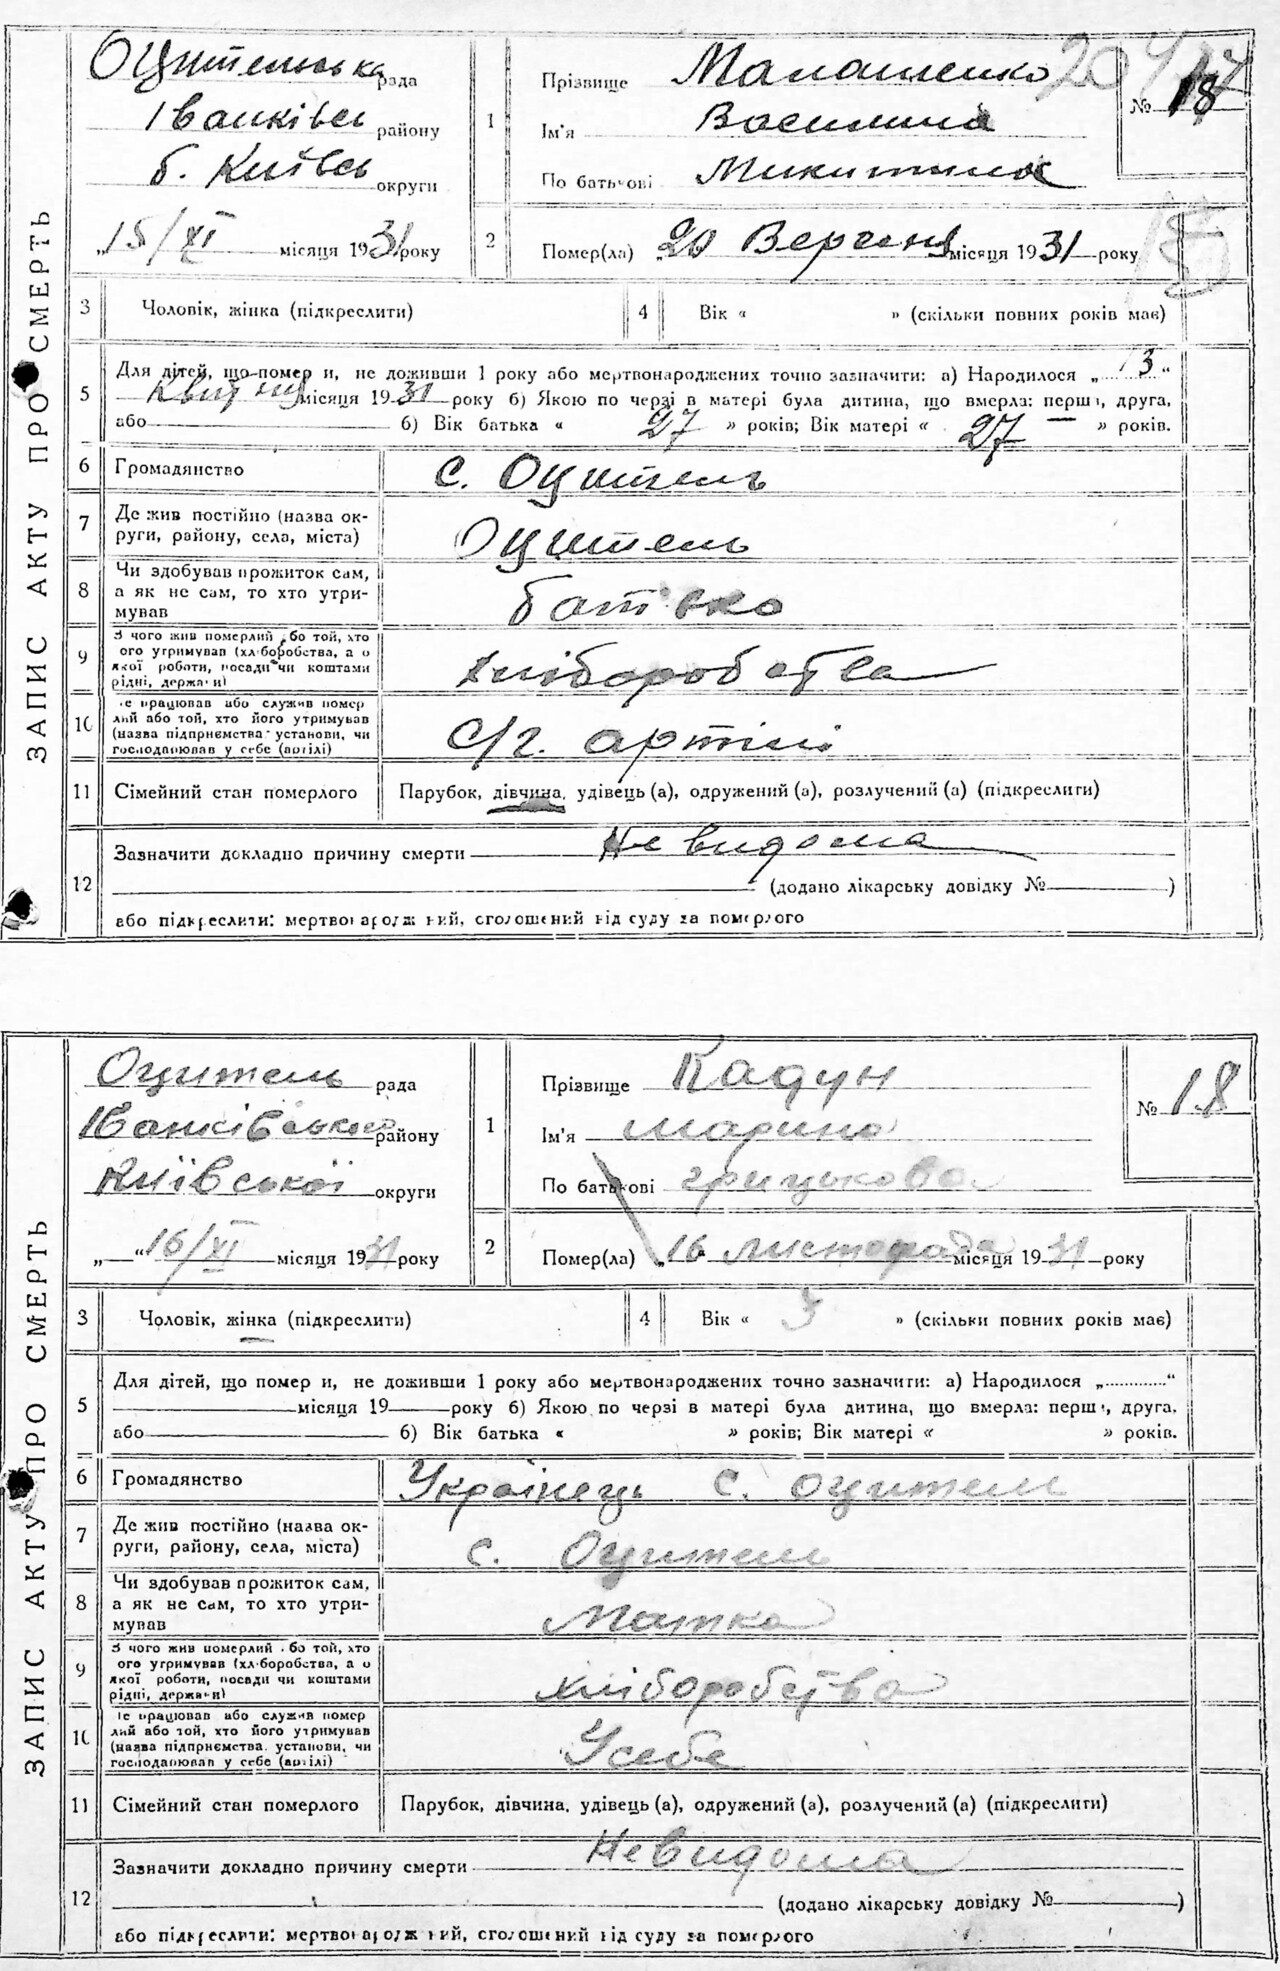 ЗАПИС АКТУ ПРО СМЕРТЬ
Оцительська рада
Іванківсь району
б. Київсь округи
„15/XI місяця 1931 року
1 Прізвище Малашенко
Ім'я Василина
По батькові Микитина
№ 18
2 Помер(ла) „20 Вересня місяця 1931 року
3 Чоловік, жінка (підкреслити) 4 Вік « » (скільки повних років має)
5 Для дітей, що помер и, не доживши 1 року або мертвонароджених точно зазначити: а) Народилося „13“
Квітня місяця 1931 року б) Якою по черзі в матері була дитина, що вмерла: перша, друга,
або б) Вік батька « 27 » років; Вік матері « 27 » років.
6 Громадянство с. Оцитель
7 Де жив постійно (назва ок-
руги, району, села, міста) Оцитель
8 Чи здобував прожиток сам,
а як не сам, то хто утри-
мував батько
9 З чого жив померлий або той, хто
ого утримував (хл боробства, а о
якої роботи, посади чи коштами
рідні, держави) хліборобства
10 е працював або служив помер
лий або той, хто його утримував
(назва підприємства установи, чи
господарював у себе (артілі) С/г. артілі
11 Сімейний стан померлого Парубок, дівчина, удівець (а), одружений (а), розлучений (а) (підкреслити)
12 Зазначити докладно причину смерти Не видома
(додано лікарську довідку № )
або підкреслити: мертвонароджений, оголошений від суду за померлого
ЗАПИС АКТУ ПРО СМЕРТЬ
Оцитель рада
Іванківського району
Київської округи
„ “ 16/XI місяця 1931 року
1 Прізвище Кадун
Ім'я Марина
По батькові грицькова
№ 18
2 Помер(ла) „16 листопада місяця 1931 року
3 Чоловік, жінка (підкреслити) 4 Вік « » (скільки повних років має)
5 Для дітей, що помер и, не доживши 1 року або мертвонароджених точно зазначити: а) Народилося „ “
місяця 19 року б) Якою по черзі в матері була дитина, що вмерла: перша, друга,
або б) Вік батька « » років; Вік матері « » років.
6 Громадянство Українець с. Оцитель
7 Де жив постійно (назва ок-
руги, району, села, міста) с. Оцитель
8 Чи здобував прожиток сам,
а як не сам, то хто утри-
мував Матка
9 З чого жив померлий або той, хто
ого утримував (хл боробства, а о
якої роботи, посади чи коштами
рідні, держави) хліборобство
10 е працював або служив помер
лий або той, хто його утримував
(назва підприємства, установи, чи
господарював у себе (артілі) У себе
11 Сімейний стан померлого Парубок, дівчина, удівець (а), одружений (а), розлучений (а) (підкреслити)
12 Зазначити докладно причину смерти Не видома
(додано лікарську довідку № )
або підкреслити: мертвонароджений, оголошений від суду за померлого